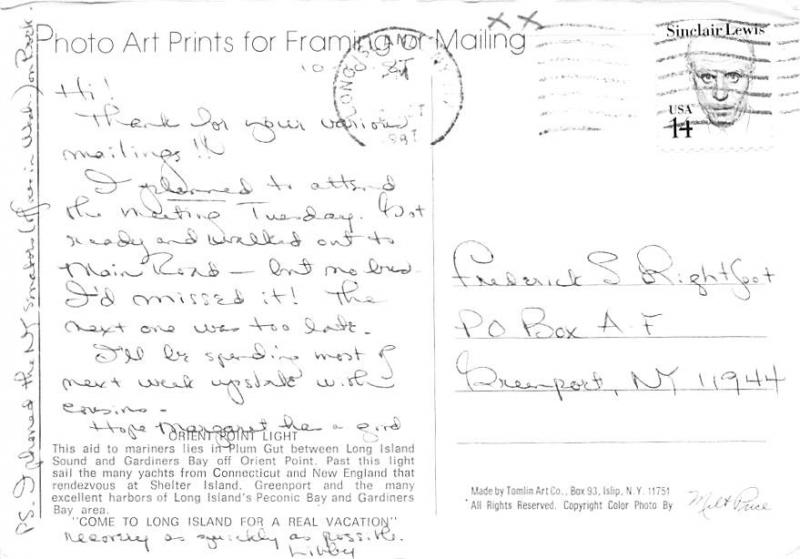 Photo Art Prints for Framing or Mailing
XX
LONG ISLAND
Sinclair Lewis
USA
14
Hi!
Thank for your various
mailings!!
I planned to attend
the meeting Tuesday. Got
ready and walked out to
Main Road — but no bus.
I'd missed it! The
next one was too late.
I'll be spending most of
next week upstate with
cousins.
Hope Margaret has a good
ORIENT POINT LIGHT
This aid to mariners lies in Plum Gut between Long Island
Sound and Gardiners Bay off Orient Point. Past this light
sail the many yachts from Connecticut and New England that
rendezvous at Shelter Island. Greenport and the many
excellent harbors of Long Island's Peconic Bay and Gardiners
Bay area.
"COME TO LONG ISLAND FOR A REAL VACATION"
recovery as quickly as possible.
Libby
PS. I phoned the NY Senators (offices in Wash) on Brok.
Frederick S Rightfoot
PO Box A-F
Greenport, NY 11944
Made by Tomlin Art Co., Box 93, Islip, N.Y. 11751
All Rights Reserved. Copyright Color Photo By Milt Price